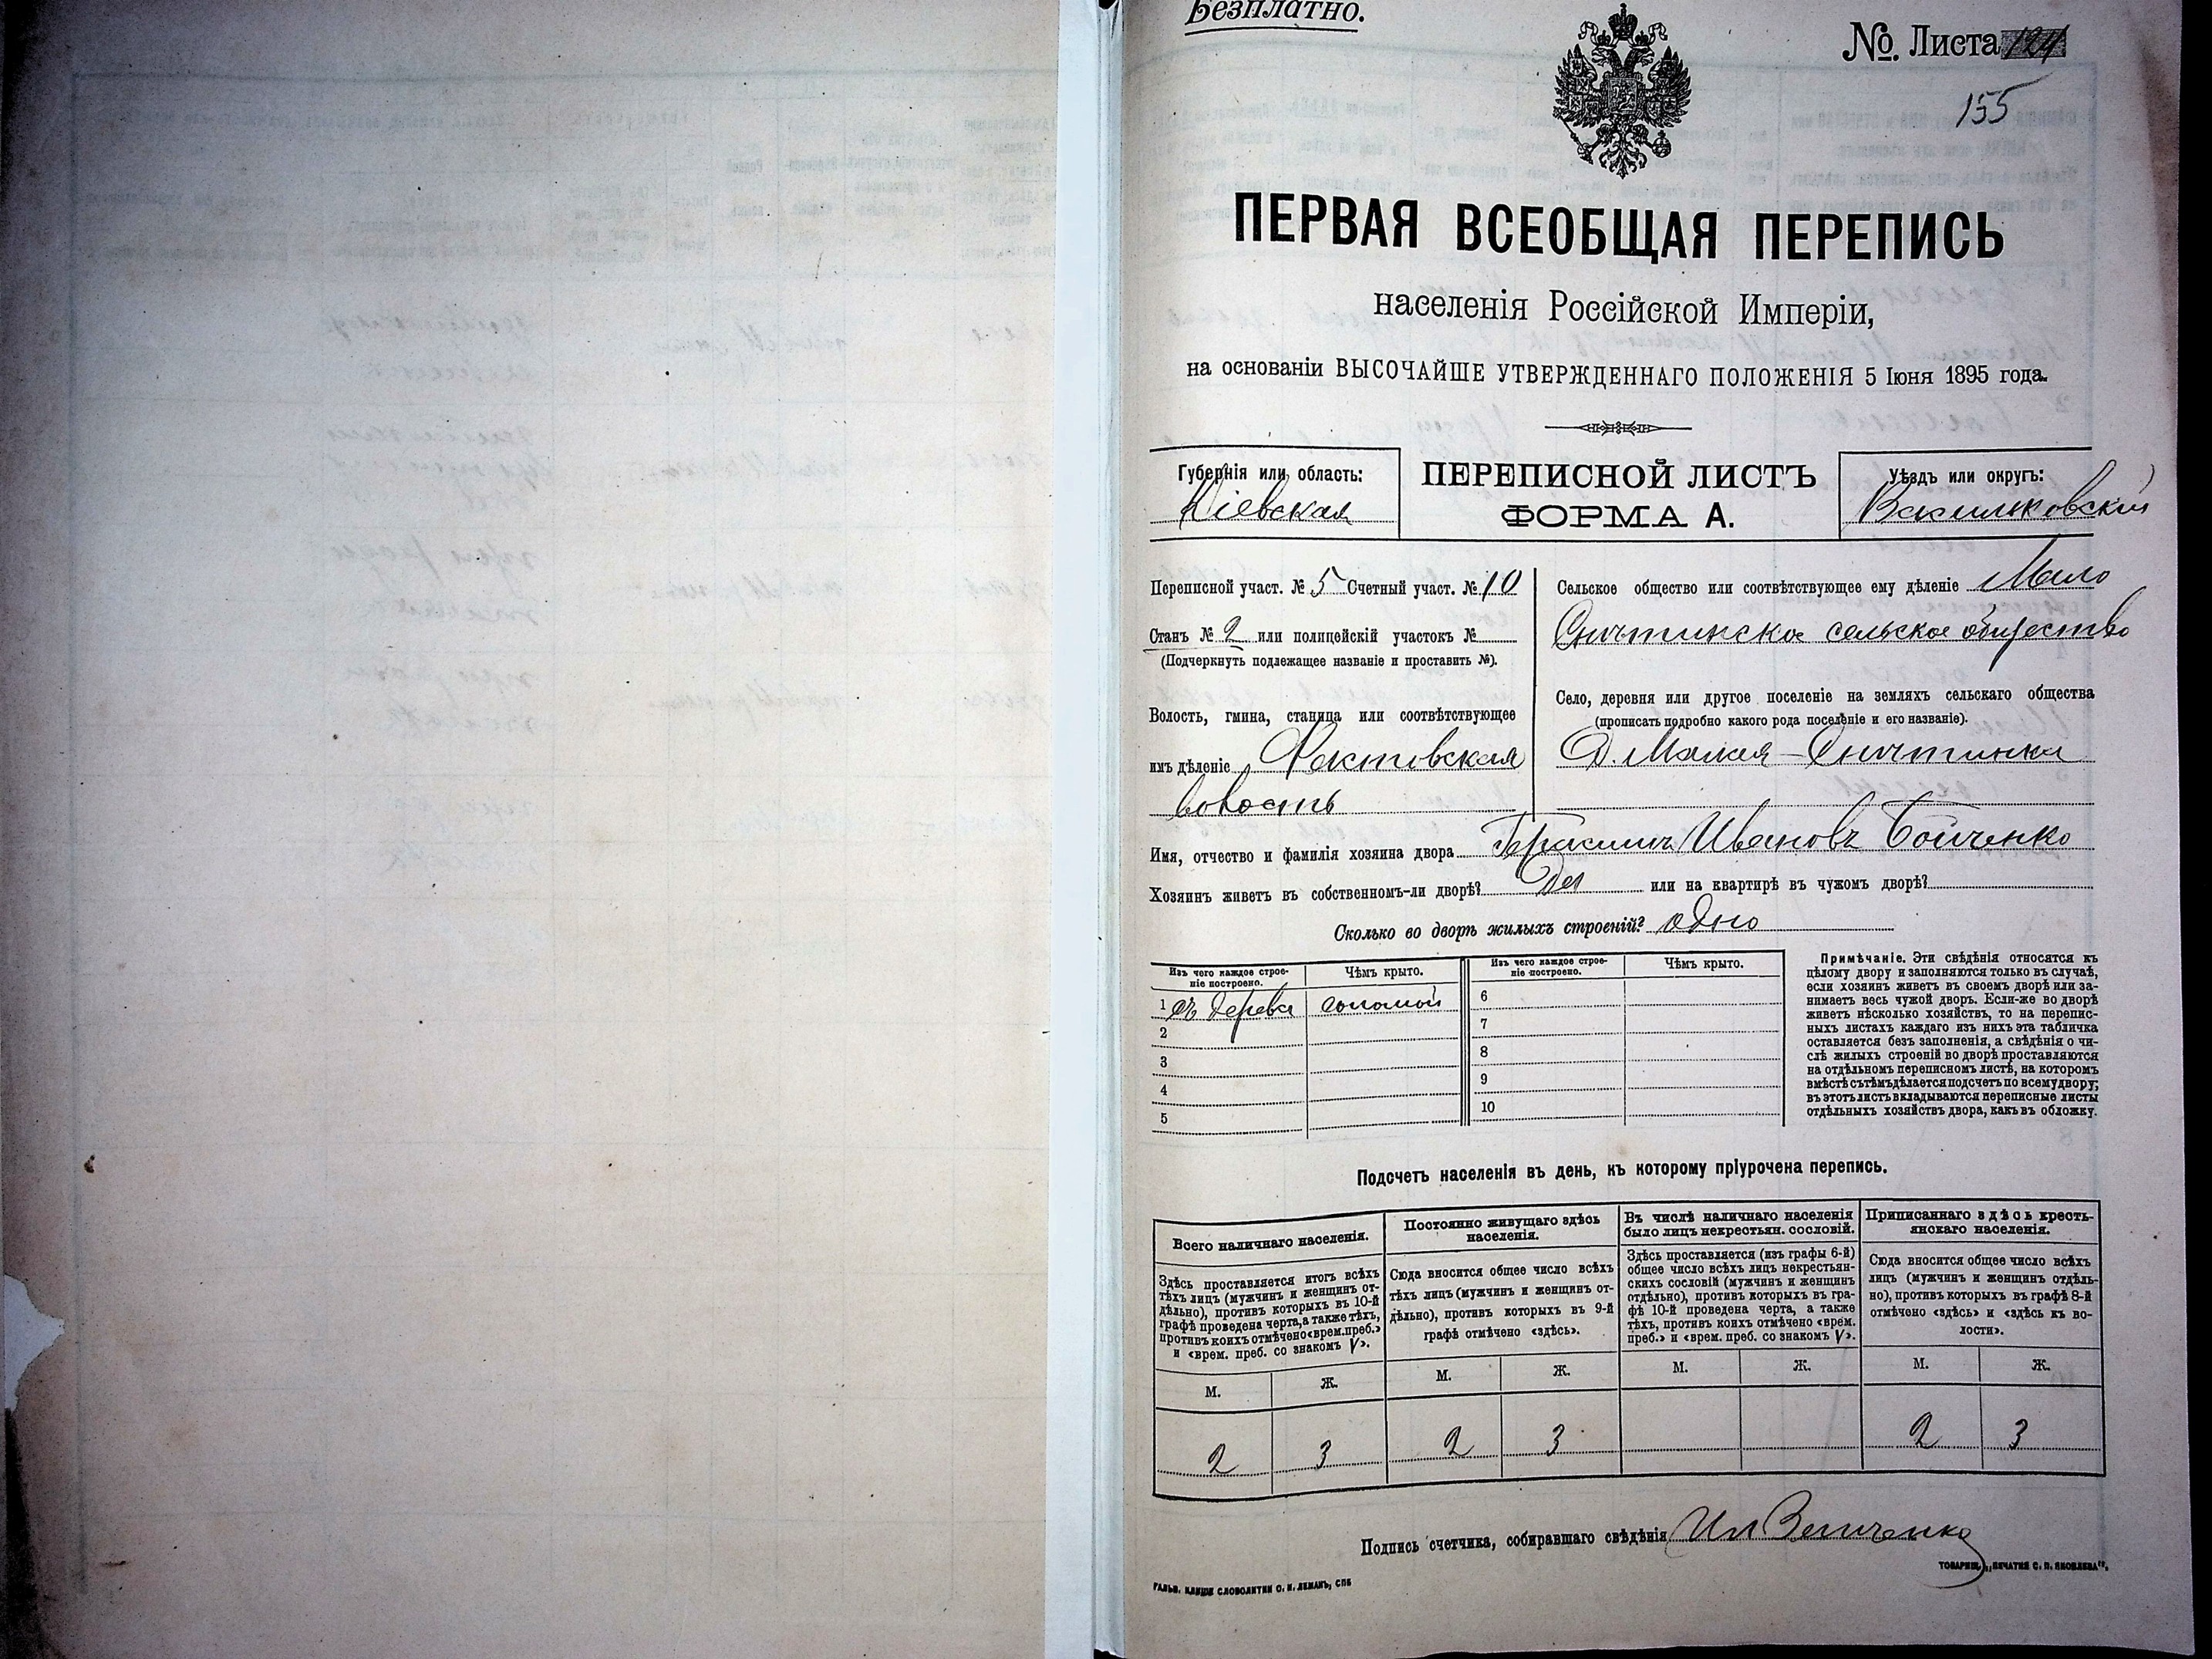 Безплатно.
№ Листа 124
155
ПЕРВАЯ ВСЕОБЩАЯ ПЕРЕПИСЬ
населенія Россійской Имперіи,
на основаніи ВЫСОЧАЙШЕ УТВЕРЖДЕННАГО ПОЛОЖЕНІЯ 5 Іюня 1895 года.
Губернія или область:
Кіевская
ПЕРЕПИСНОЙ ЛИСТЪ
ФОРМА А.
Уѣздъ или округъ:
Васильковский
Переписной участ. № 5 Счетный участ. № 10
Станъ № 2 или полицейскій участокъ №
(Подчеркнуть подлежащее названіе и проставить №).
Волость, гмина, станица или соотвѣтствующее
имъ дѣленіе Фастовская
волость
Сельское общество или соотвѣтствующее ему дѣленіе Мало
Снитинское сельское общество
Село, деревня или другое поселеніе на земляхъ сельскаго общества
(прописать подробно какого рода поселеніе и его названіе).
Д. Малая-Снитинка
Имя, отчество и фамилія хозяина двора Герасимъ Ивановъ Бойченко
Хозяинъ живетъ въ собственномъ-ли дворѣ? Да или на квартирѣ въ чужомъ дворѣ?
Сколько во дворѣ жилыхъ строеній? одно
Изъ чего каждое строе-
ніе построено.
Чѣмъ крыто.
Изъ чего каждое строе-
ніе построено.
Чѣмъ крыто.
1 съ дерева соломой 6
2 7
3 8
4 9
5 10
Примѣчаніе. Эти свѣдѣнія относятся къ
цѣлому двору и заполняются только въ случаѣ,
если хозяинъ живетъ въ своемъ дворѣ или за-
нимаетъ весь чужой дворъ. Если-же во дворѣ
живетъ нѣсколько хозяйствъ, то на перепис-
ныхъ листахъ каждаго изъ нихъ эта табличка
оставляется безъ заполненія, а свѣдѣнія о чи-
слѣ жилыхъ строеній во дворѣ проставляются
на отдѣльномъ переписномъ листѣ, на которомъ
вмѣстѣ съ тѣмъ дѣлается подсчетъ по всему двору;
въ этотъ листъ вкладываются переписные листы
отдѣльныхъ хозяйствъ двора, какъ въ обложку.
Подсчетъ населенія въ день, къ которому пріурочена перепись.
Всего наличнаго населенія.
Здѣсь проставляется итогъ всѣхъ
тѣхъ лицъ (мужчинъ и женщинъ от-
дѣльно), противъ которыхъ въ 10-й
графѣ проведена черта, а также тѣхъ,
противъ коихъ отмѣчено «врем. преб.»
и «врем. преб. со знакомъ V».
М. Ж.
2 3
Постоянно живущаго здѣсь
населенія.
Сюда вносится общее число всѣхъ
тѣхъ лицъ (мужчинъ и женщинъ от-
дѣльно), противъ которыхъ въ 9-й
графѣ отмѣчено «здѣсь».
М. Ж.
2 3
Въ числѣ наличнаго населенія
было лицъ некрестьян. сословій.
Здѣсь проставляется (изъ графы 6-й)
общее число всѣхъ лицъ некрестьян-
скихъ сословій (мужчинъ и женщинъ
отдѣльно), противъ которыхъ въ гра-
фѣ 10-й проведена черта, а также
тѣхъ, противъ коихъ отмѣчено «врем.
преб.» и «врем. преб. со знакомъ V».
М. Ж.
Приписаннаго здѣсь кресть-
янскаго населенія.
Сюда вносится общее число всѣхъ
лицъ (мужчинъ и женщинъ отдѣль-
но), противъ которыхъ въ графѣ 8-й
отмѣчено «здѣсь» и «здѣсь къ во-
лости».
М. Ж.
2 3
Подпись счетчика, собиравшаго свѣдѣнія
ГАЛЬВ. КЛИШЕ СЛОВОЛИТНИ О. И. ЛЕМАНЪ, СПБ
ТОВАРИЩ. „ПЕЧАТНЯ С. П. ЯКОВЛЕВА",